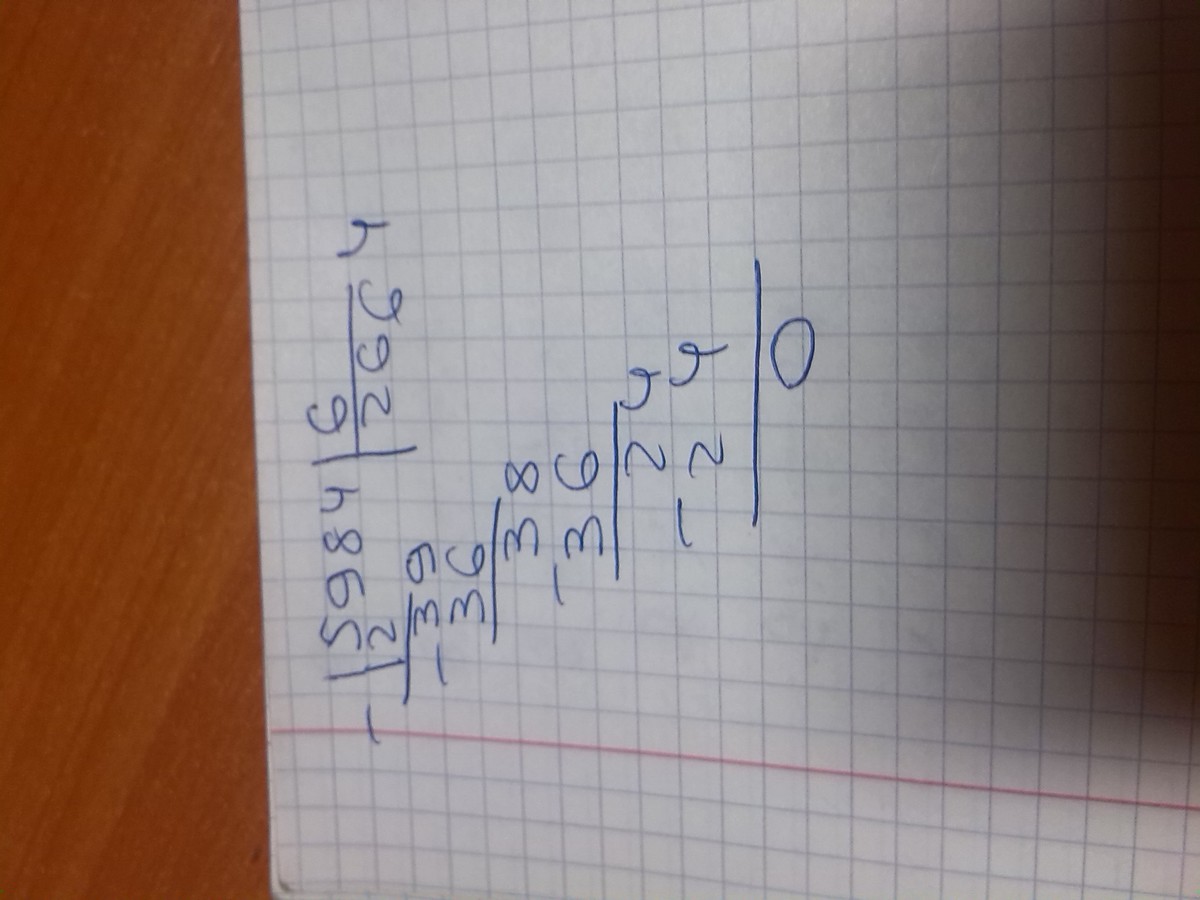 15984 | 6
- 12 2664
- 39
36
38
- 36
24
- 24
0